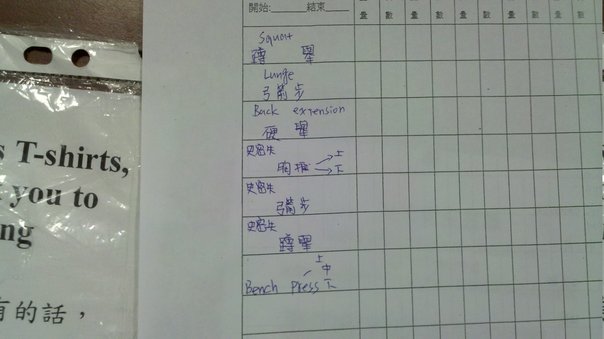 開始:______結束____
量 數 量 數 量 數 量 數 量 數
Squat
蹲舉
Lunge
弓箭步
Back extension
硬舉
史密失
胸推 上
下
史密失
弓箭步
史密失
蹲舉
上
中
Bench Press 下
s T-shirts,
you to
ng
有的話，